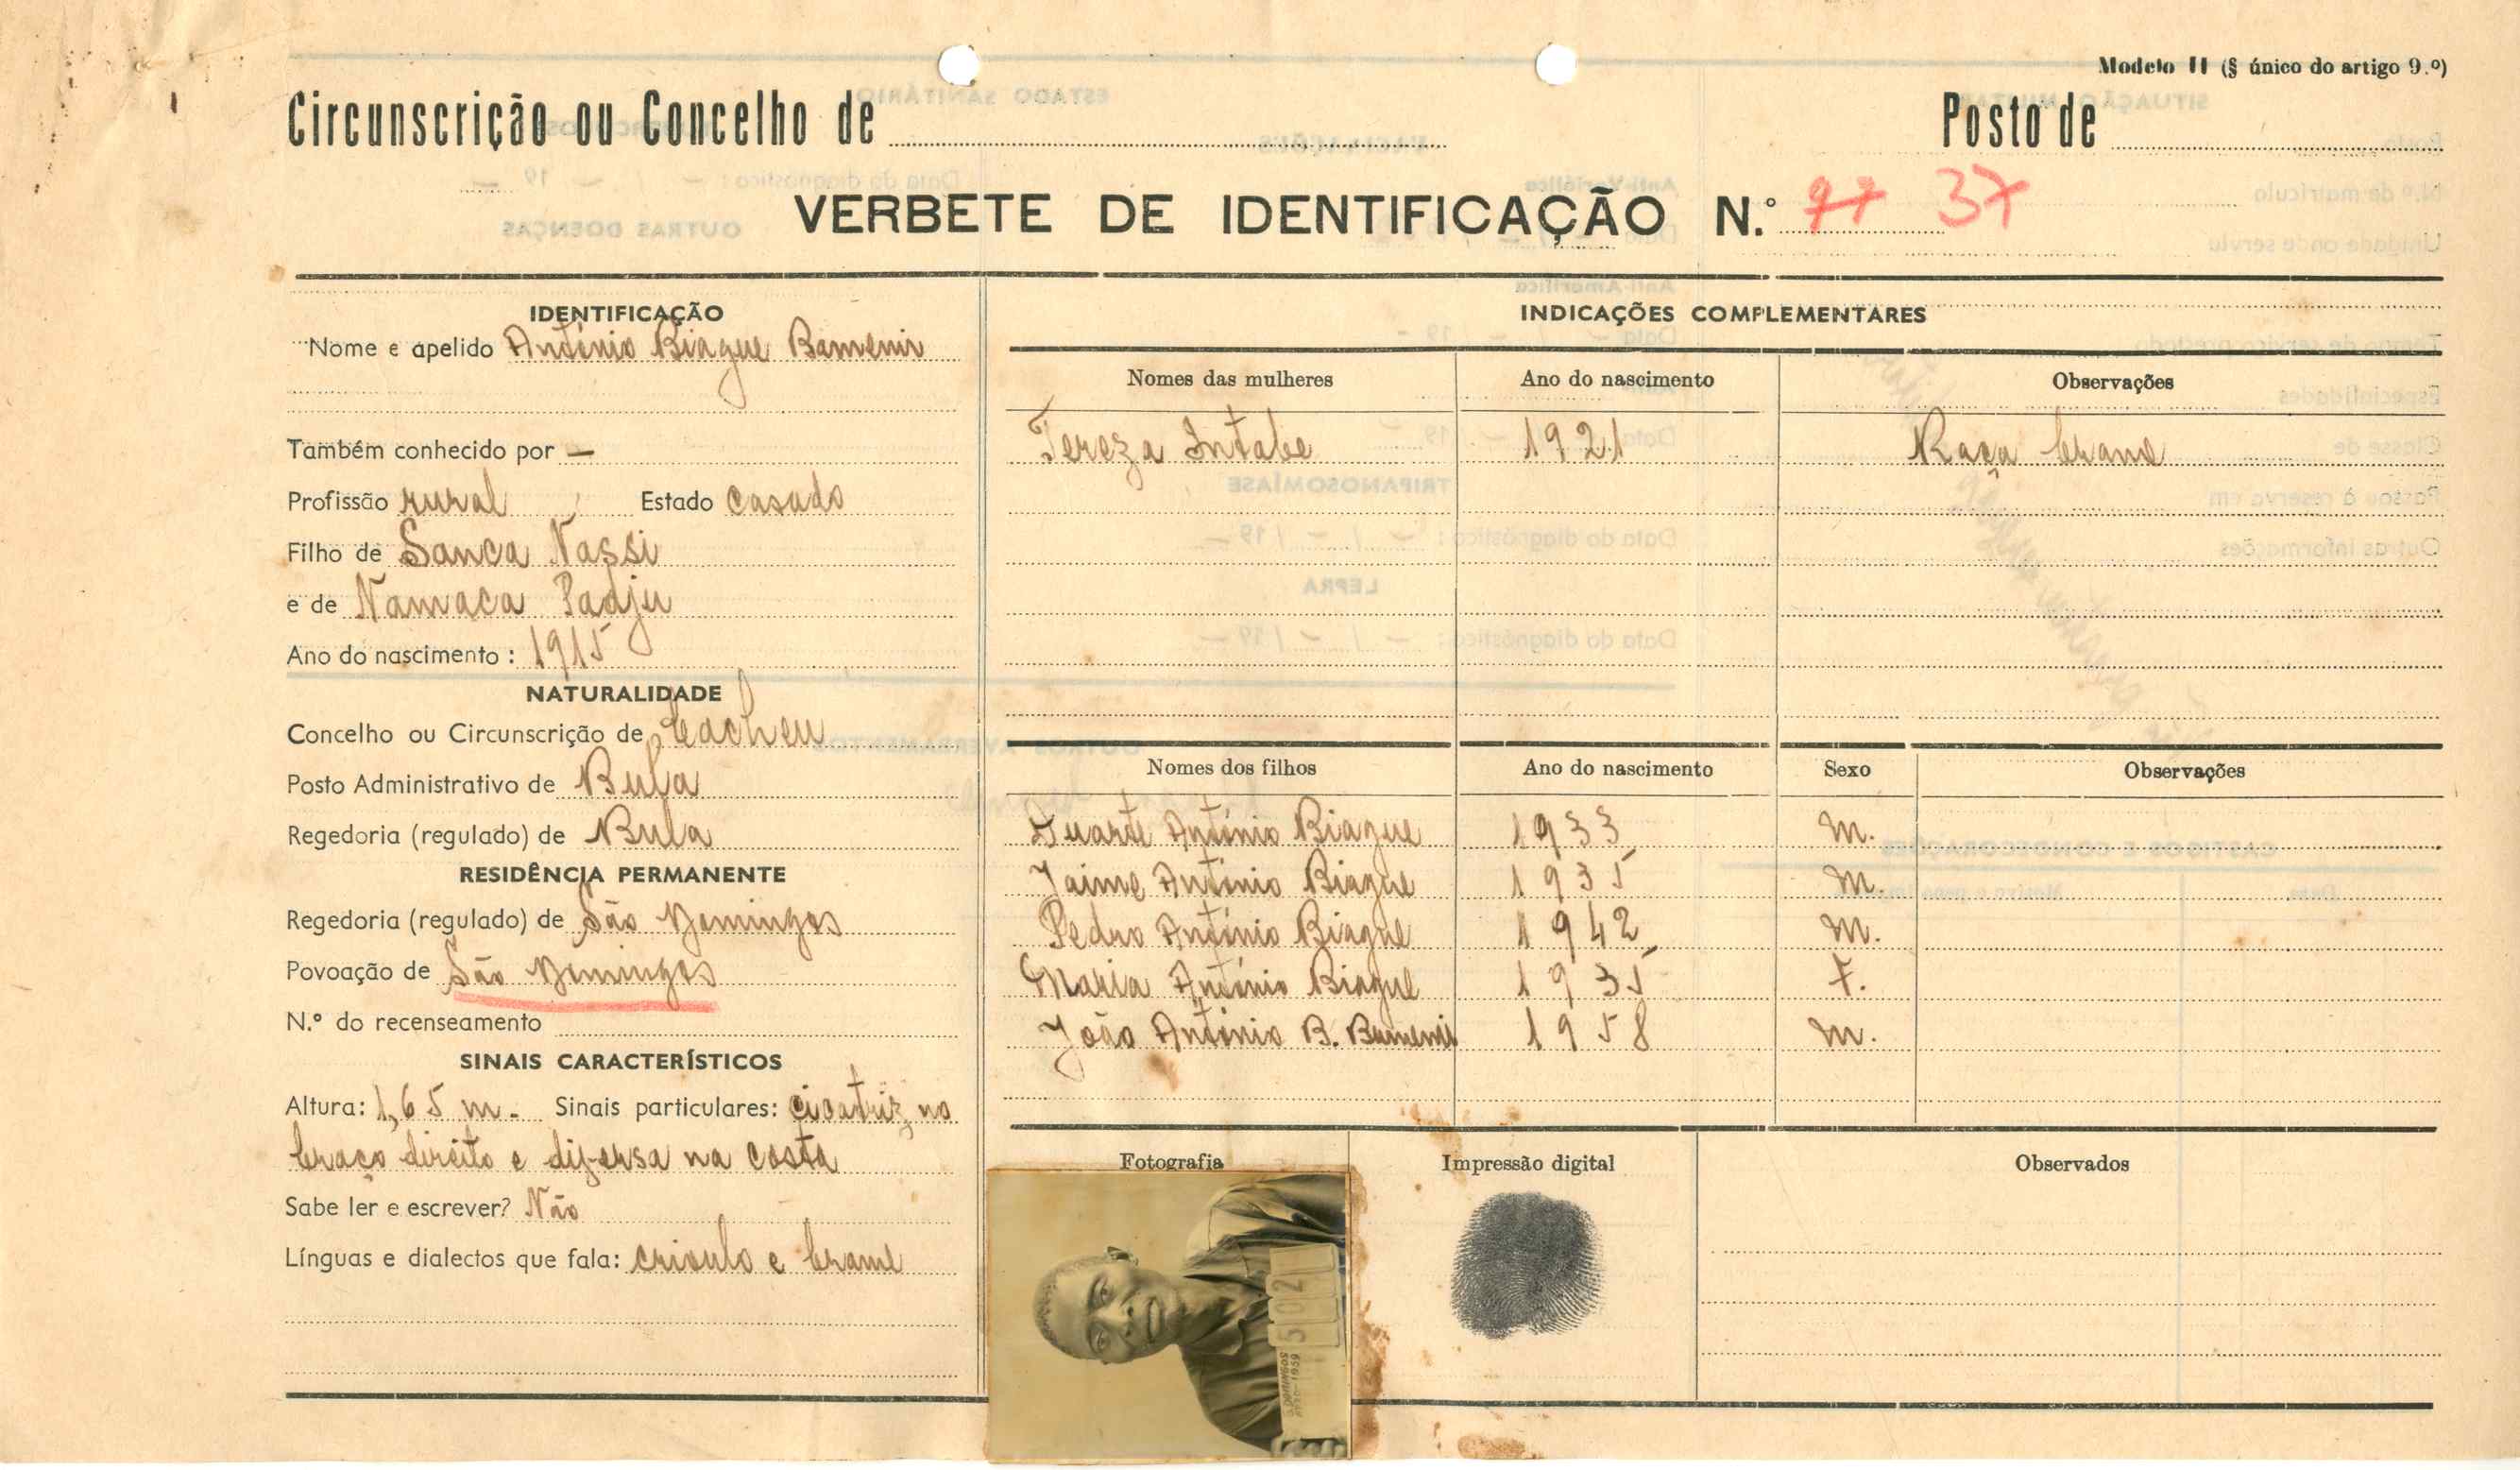 Modelo II (§ único do artigo 9.º)
Circunscrição ou Concelho de
Posto de
VERBETE DE IDENTIFICAÇÃO N.º 97 37
IDENTIFICAÇÃO
Nome e apelido António Biague Bamenir
Também conhecido por —
Profissão rural Estado casado
Filho de Sanca Nassi
e de Namaca Padju
Ano do nascimento: 1915
NATURALIDADE
Concelho ou Circunscrição de Cacheu
Posto Administrativo de Bula
Regedoria (regulado) de Bula
RESIDÊNCIA PERMANENTE
Regedoria (regulado) de São Domingos
Povoação de São Domingos
N.º do recenseamento
SINAIS CARACTERÍSTICOS
Altura: 1,65 m. Sinais particulares: cicatriz no
braço direito e diversa na costa
Sabe ler e escrever? Não
Línguas e dialectos que fala: crioulo e brame
INDICAÇÕES COMPLEMENTARES
Nomes das mulheres Ano do nascimento Observações
Tereza Intabe 1921 Raça brame
Nomes dos filhos Ano do nascimento Sexo Observações
Duarte António Biague 1933 M.
Jaime António Biague 1935 M.
Pedro António Biague 1942 M.
Maria António Biague 1935 F.
João António B. Bamenir 1958 M.
Fotografia Impressão digital Observados
S.DOMINGOS
1959
1502